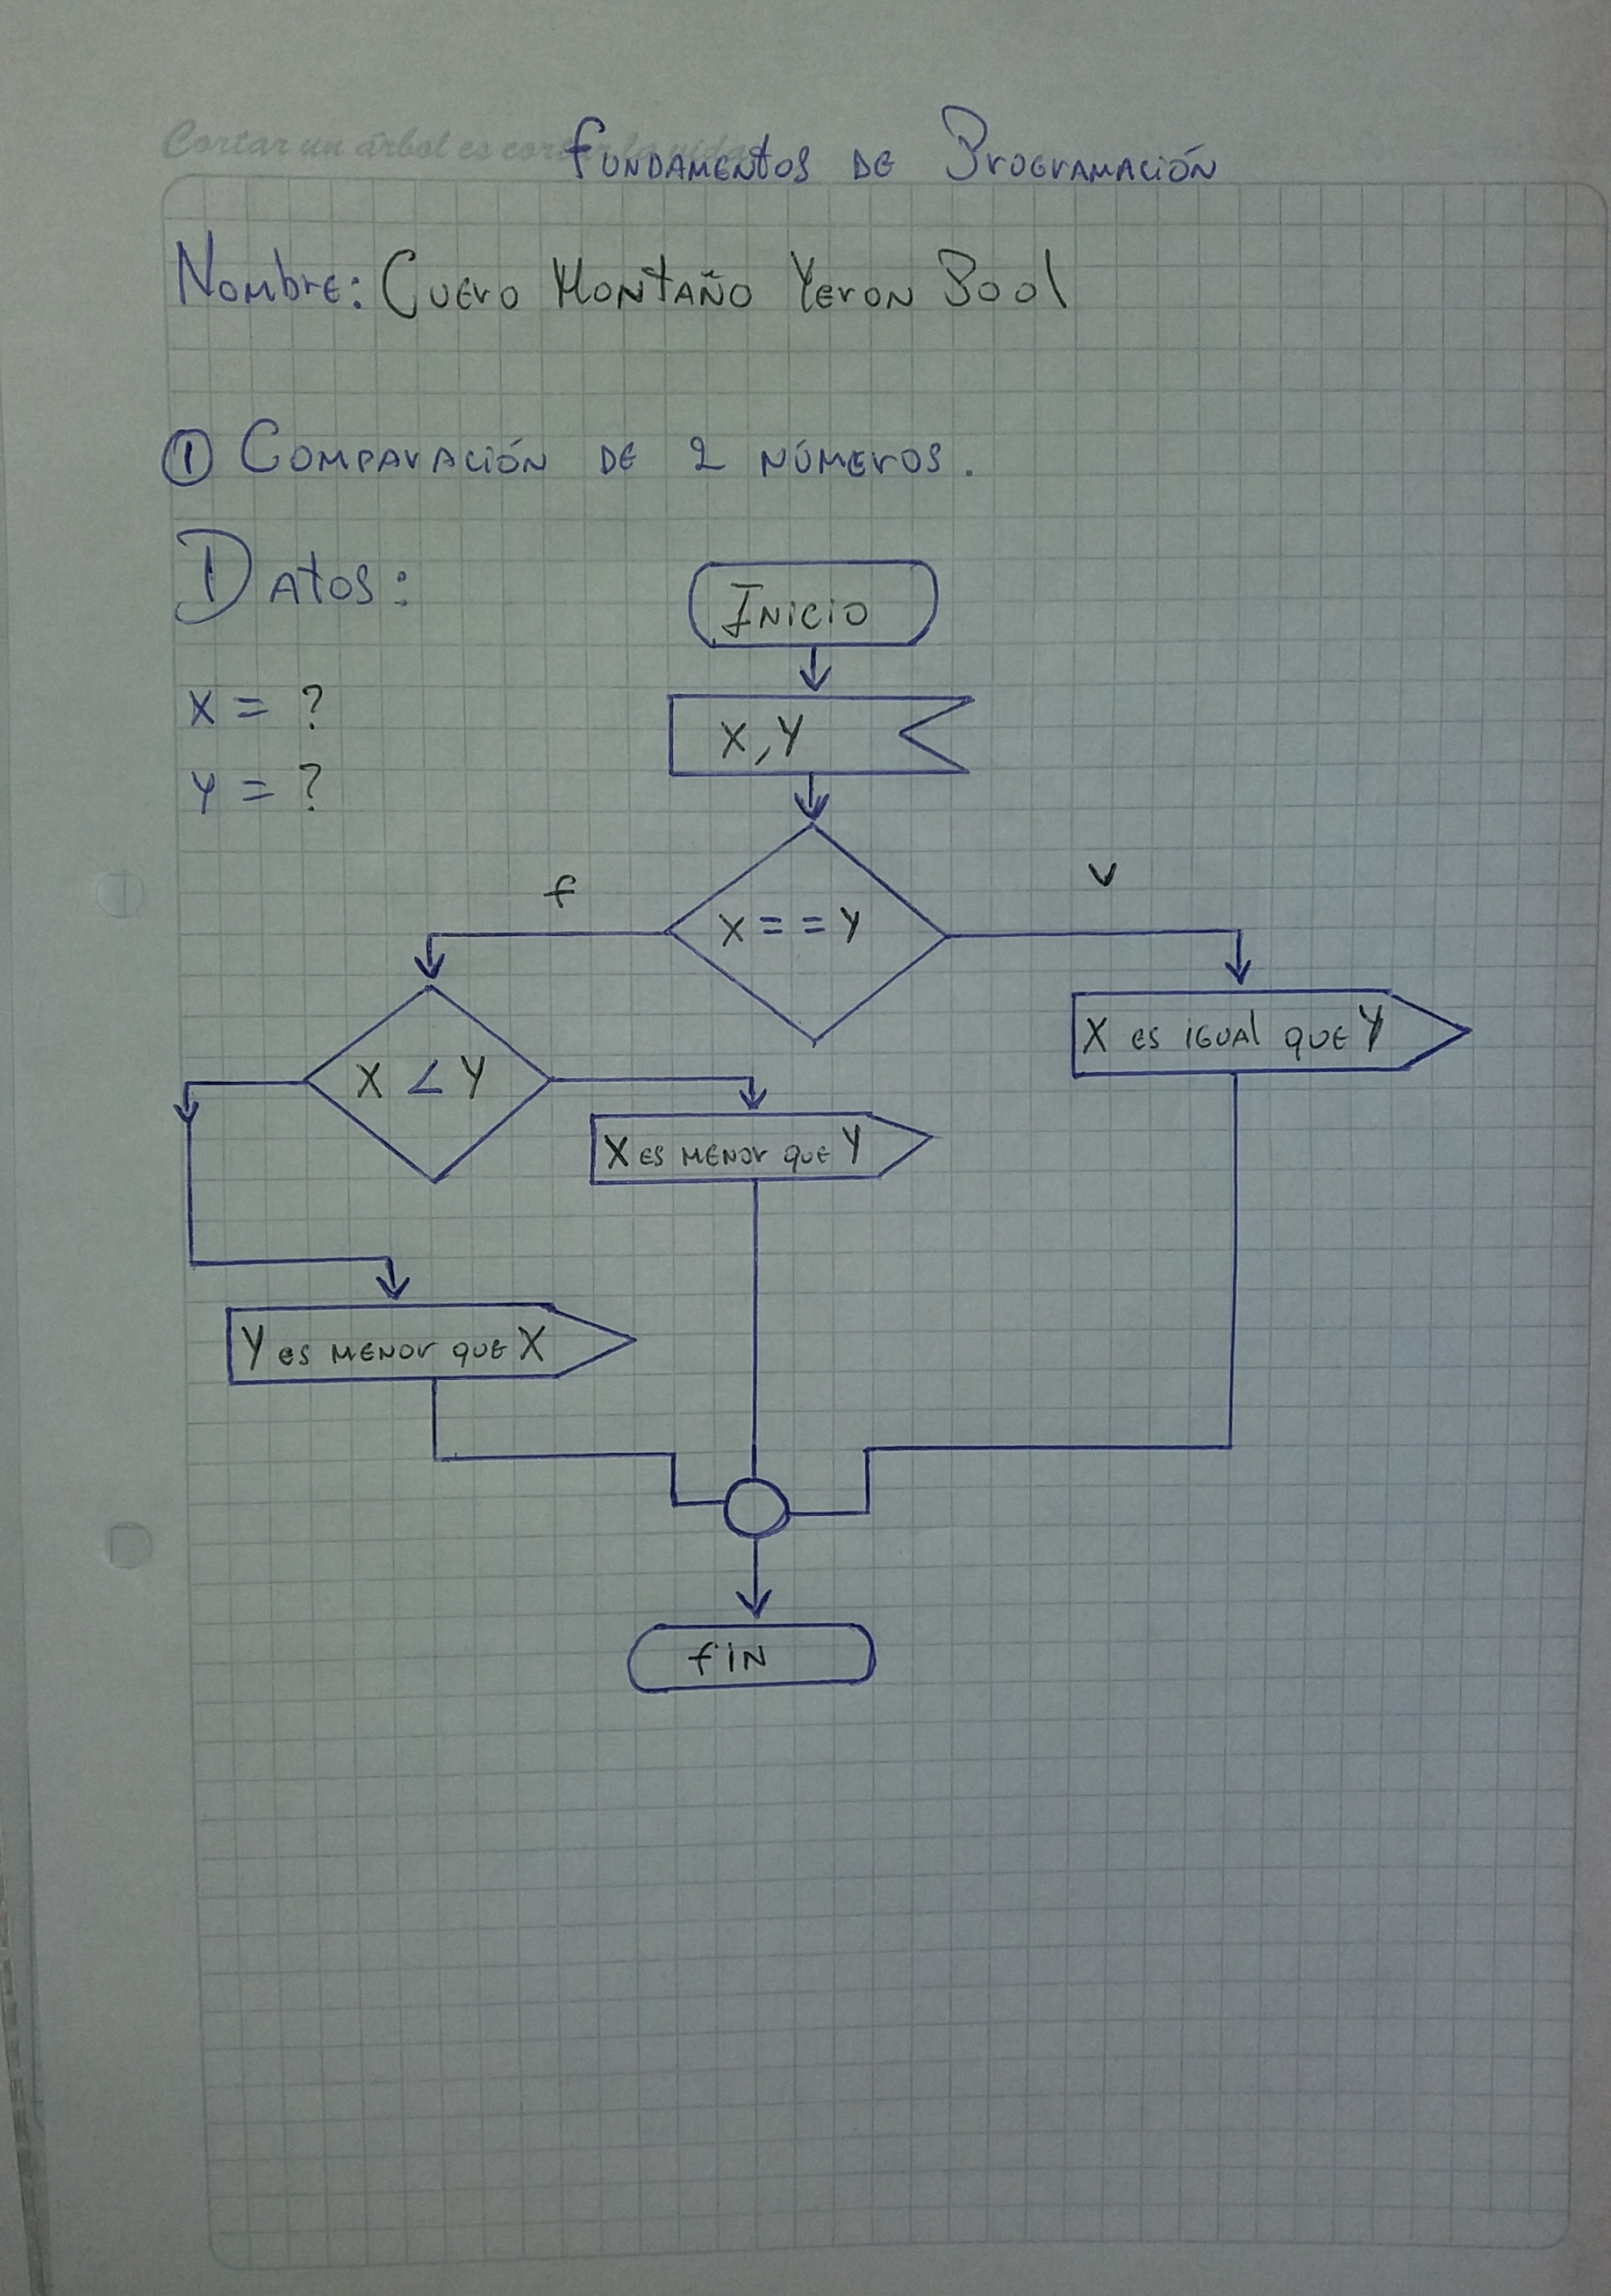 Cortar un árbol es cortar la vida
Fundamentos de Programación
Nombre: Cuero Montaño Yeron Pool
① Comparación de 2 números.
Datos:
Inicio
X = ?
X, Y
Y = ?
f
v
X == Y
X es igual que Y
X < Y
X es menor que Y
Y es menor que X
fin